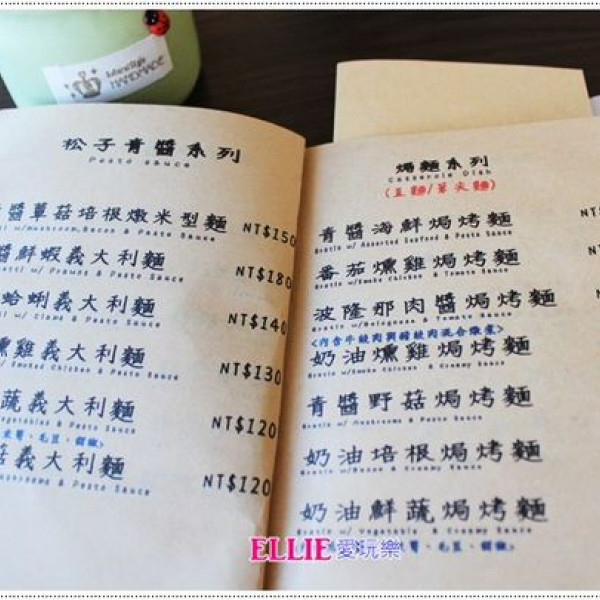 HANDMADE
松子青醬系列
Pesto sauce
醬蕈菇培根燉米型麵 NT$150
w/mushroom,Bacon & Pesto Sauce
醬鮮蝦義大利麵 NT$180
w/ Prawns & Pesto Sauce
蛤蜊義大利麵 NT$140
w/ Clams & Pesto Sauce
燻雞義大利麵 NT$130
w/ Smoked Chicken & Pesto Sauce
蔬義大利麵 NT$120
Vegetables & Pesto Sauce
毛豆、甜椒>
菇義大利麵 NT$120
Mushrooms & Pesto Sauce
焗麵系列
Casserole Dish
(直麵/筆尖麵)
青醬海鮮焗烤麵
Gratin w/ Assorted Seafood & Pesto Sauce
番茄燻雞焗烤麵
Gratin w/ Smoke Chicken & Tomato Sauce
波隆那肉醬焗烤麵
Gratin w/Bolognese & Tomato Sauce
<內含牛絞肉與豬絞肉混合燉煮>
奶油燻雞焗烤麵
Gratin w/Smoke Chicken & Creamy Sauce
青醬野菇焗烤麵
Gratin w/ Mushrooms & Pesto Sauce
奶油培根焗烤麵
Gratin w/Bacon & Creamy Sauce
奶油鮮蔬焗烤麵
Gratin w/ Vegetable & Creamy Sauce
毛豆、甜椒>
ELLIE愛玩樂